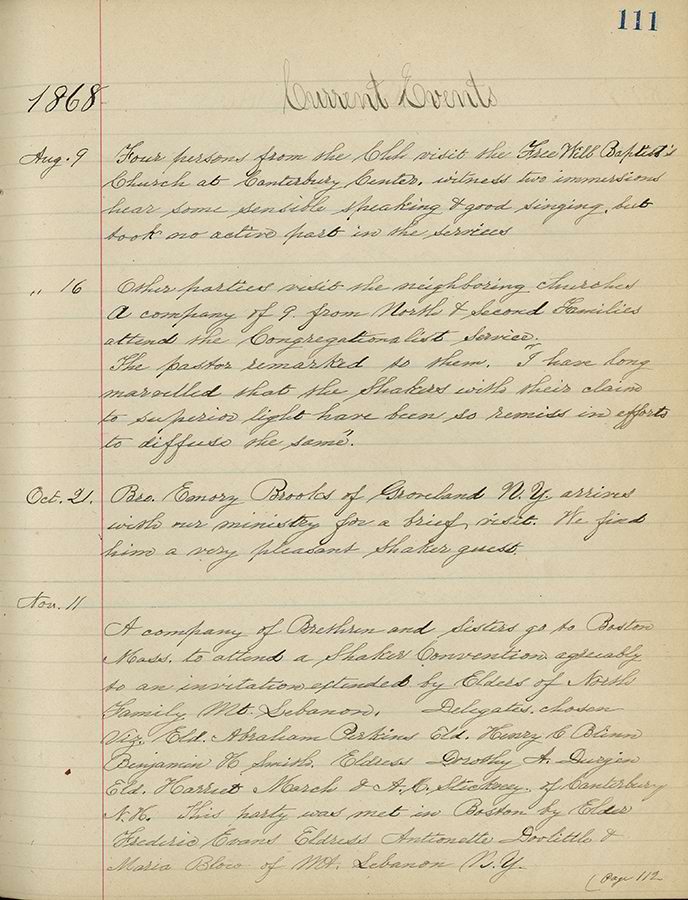 111
1868 Current Events
Aug. 9 Four persons from the Chh visit the Free Will Baptist's
Church at Canterbury Center, witness two immersions
hear some sensible speaking & good singing, but
took no active part in the services
" 16 Other parties visit the neighboring churches
A company of 9. from North & Second Families
attend the Congregationalist Service.
The pastor remarked to them. "I have long
marvelled that the Shakers with their claim
to superior light have been so remiss in efforts
to diffuse the same".
Oct. 21. Bro. Emory Brooks of Groveland N.Y. arrives
with our ministry for a brief visit. We find
him a very pleasant Shaker guest.
Nov. 11
A company of Brethren and Sisters go to Boston
Mass. to attend a Shaker Convention agreeably
to an invitation extended by Elders of North
Family Mt. Lebanon. Delegates chosen
Viz. Eld. Abraham Perkins Eld. Henry C Blinn
Benjamin H Smith. Eldress Dorothy A. Durgin
Eld. Harriet March & A. C. Stickney. of Canterbury
N.H. This party was met in Boston by Elder
Frederic Evans Eldress Antionette Doolittle &
Maria Blow of Mt. Lebanon N.Y.
(Page 112